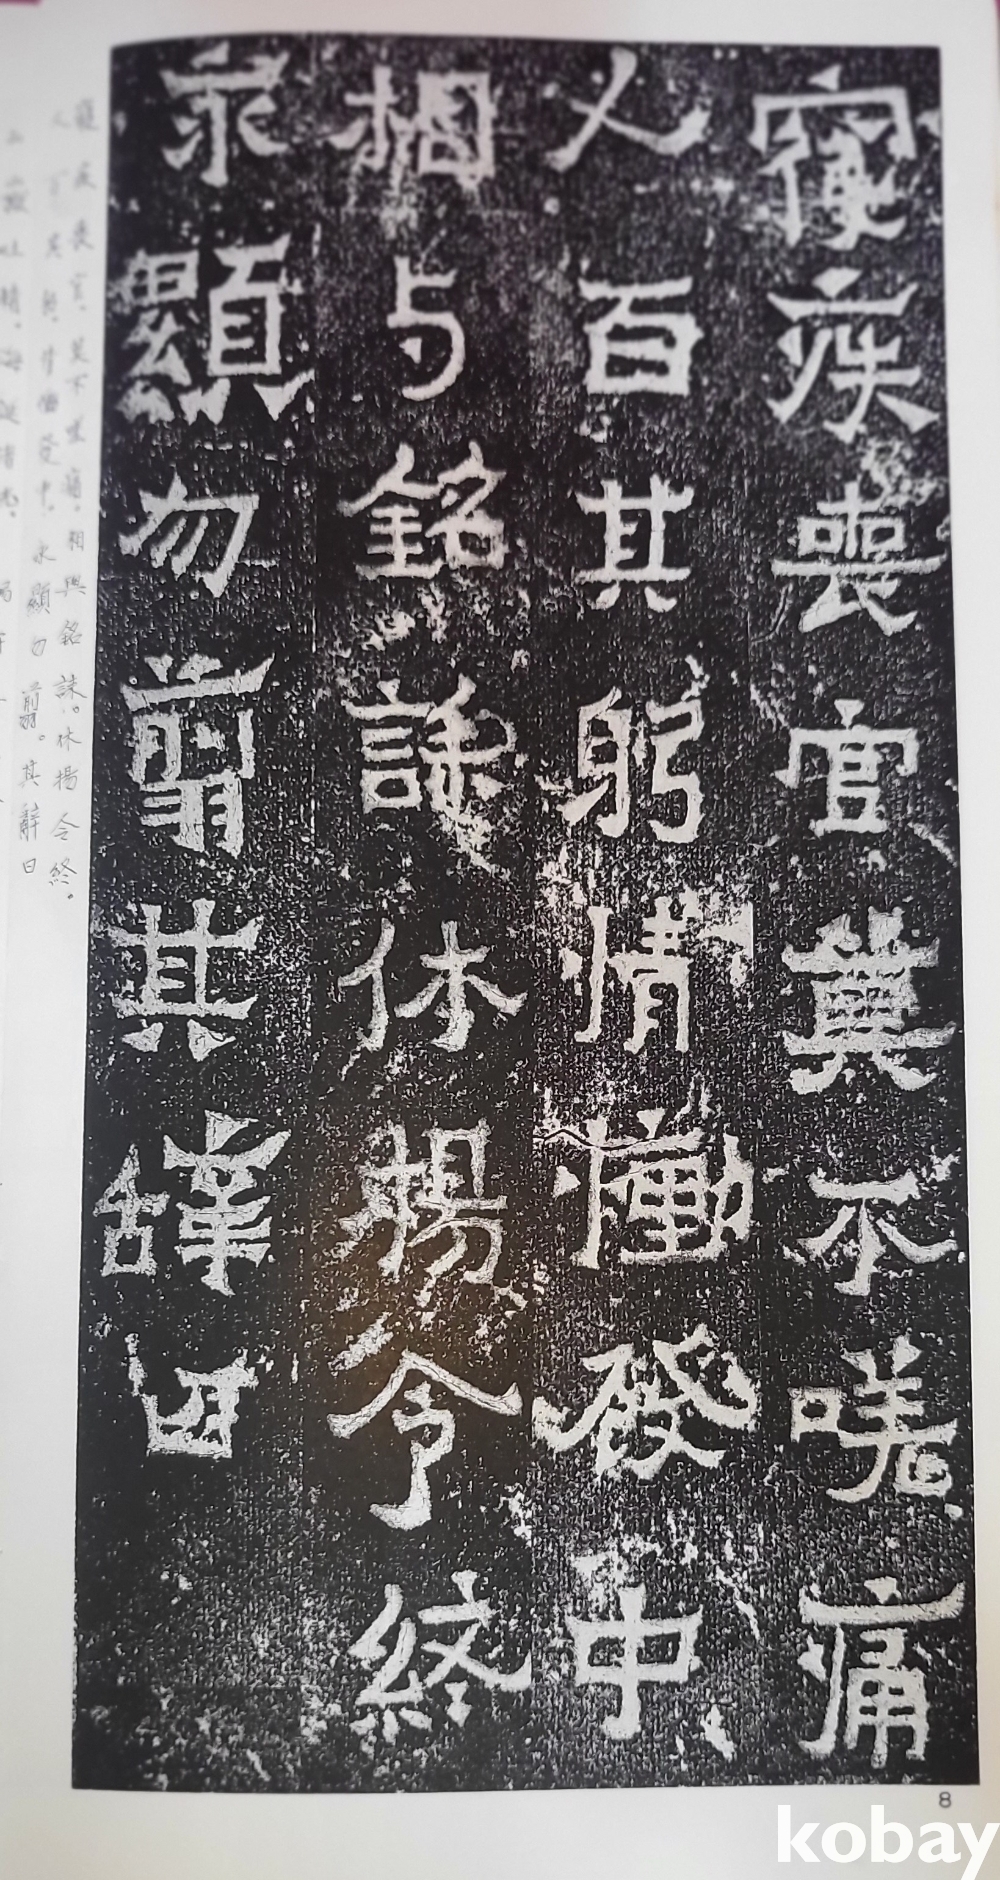 寑疾喪官莫不嗟痛
人百其躬情慟發中
相与銘誄休揚令終
永顯勿翦其辭曰
寑疾喪官莫不嗟痛。相與銘誄。休揚令終。
人百其躬。情慟發中。永顯勿翦。其辭曰
8
kobay